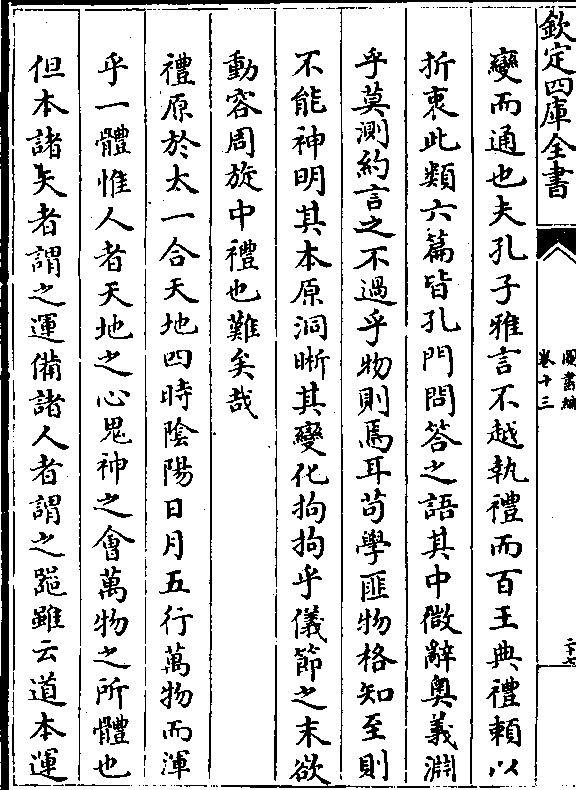 欽定四庫全書
圖書編
卷十三
二十七
變而通也夫孔子雅言不越執禮而百王典禮頼以
折衷此類六篇皆孔門問答之語其中微辭奥義淵
乎莫測約言之不過乎物則焉耳苟學匪物格知至則
不能神明其本原洞晰其變化拘拘乎儀節之末欲
動容周旋中禮也難矣哉
禮原於太一合天地四時隂陽日月五行萬物而渾
乎一體惟人者天地之心鬼神之會萬物之所體也
但本諸天者謂之運備諸人者謂之雖云道本運